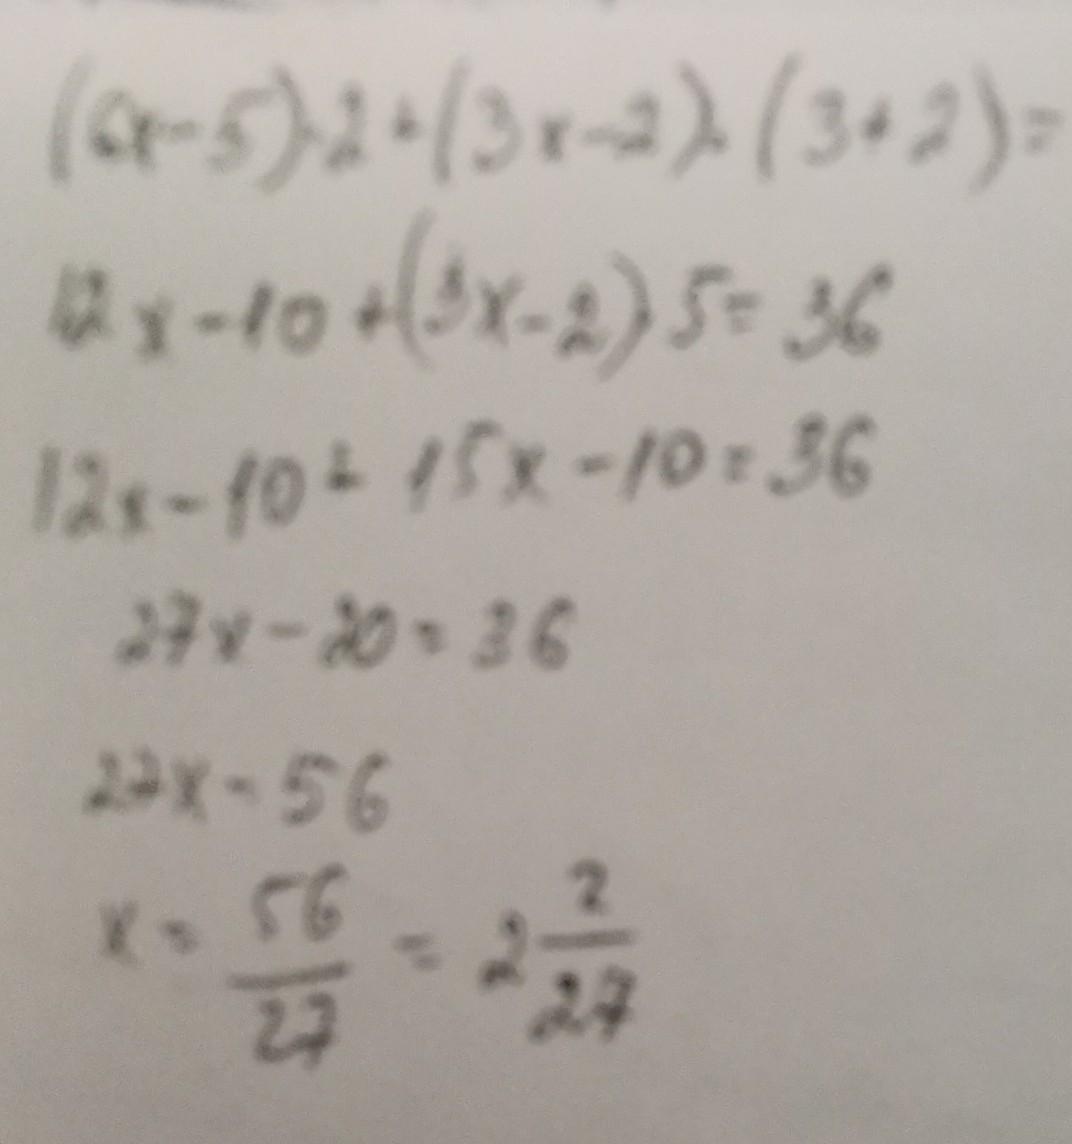 (6x-5)·2+(3x-2)·(3+2)=
12x-10+(3x-2)·5=36
12x-10+15x-10=36
27x-20=36
27x=56
x=56/27=2 2/27